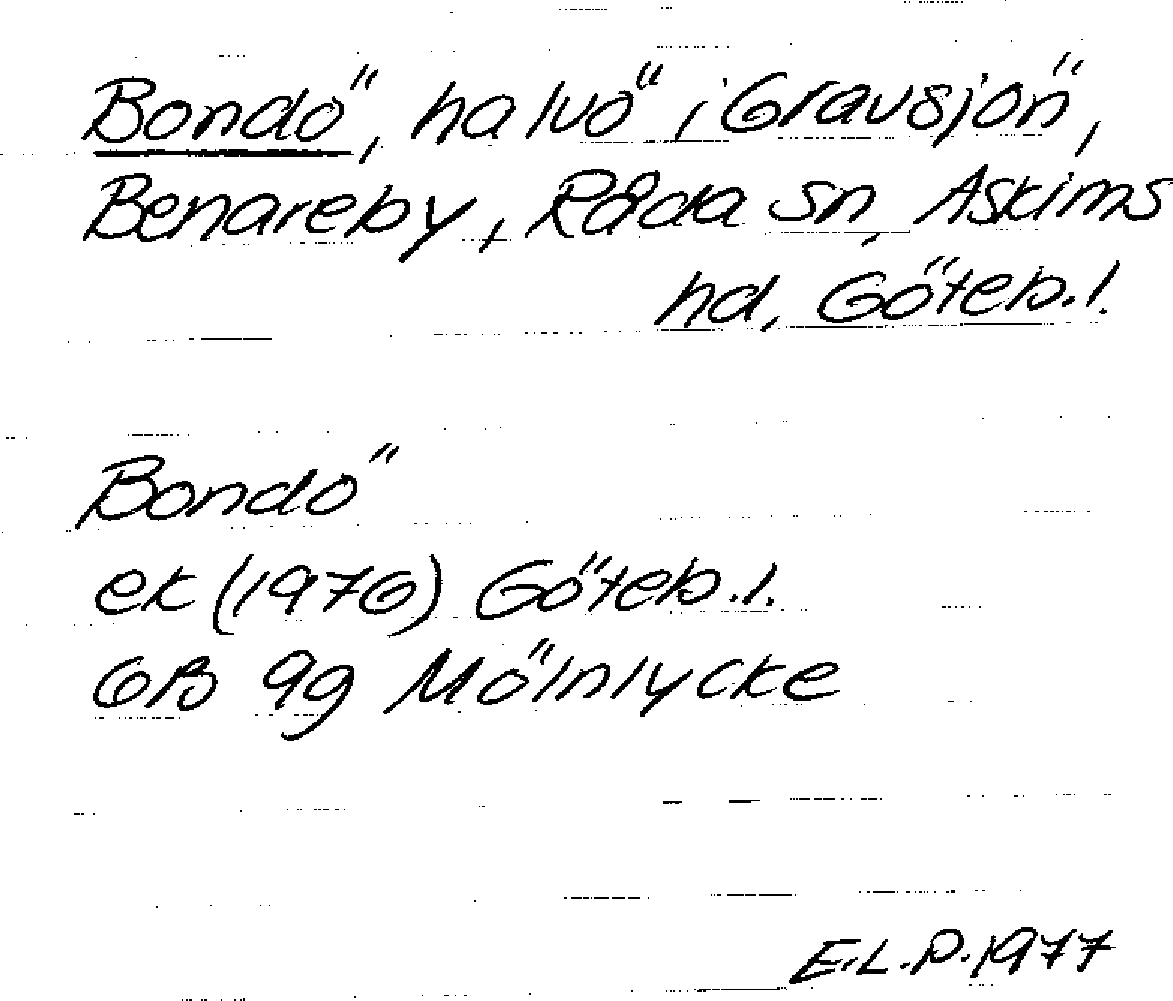 Bondö, halvö i Gravsjön,
Benareby, Råda sn, Askims
hd, Göteb.l.
Bondö
ek (1976) Göteb.l.
6B 9g Mölnlycke
E.L.P. 1977